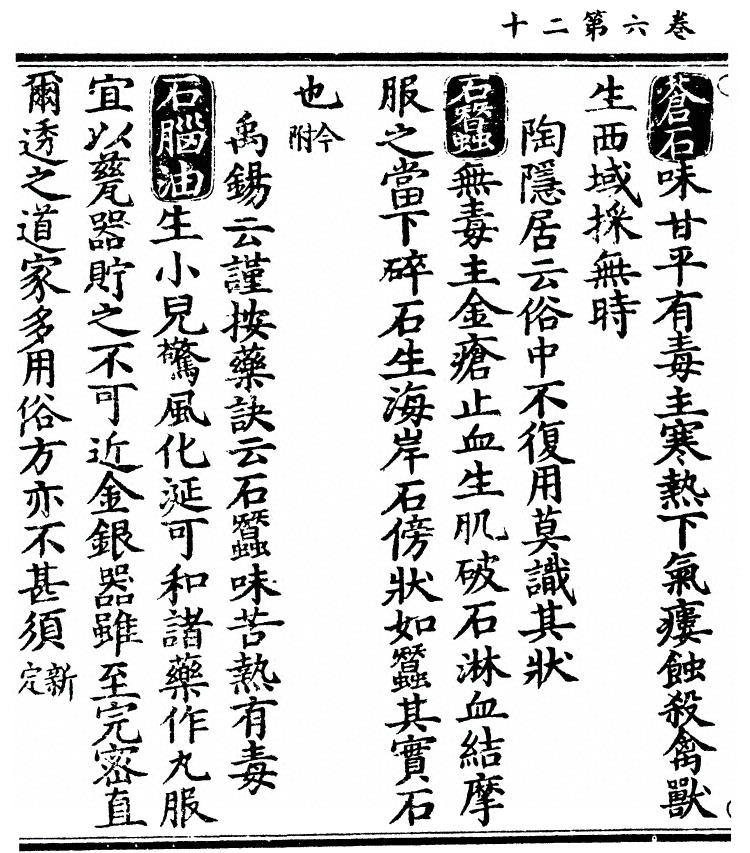 卷六第二十
蒼石味甘平有毒主寒熱下氣瘻蝕殺禽獸
生西域採無時
陶隱居云俗中不復用莫識其狀
石蠶無毒主金瘡止血生肌破石淋血結摩
服之當下碎石生海岸石傍狀如蠶其實石
也今附
禹錫云謹按藥訣云石蠶味苦熱有毒
石腦油生小兒驚風化涎可和諸藥作丸服
宜以甆器貯之不可近金銀器雖至完密直
爾透之道家多用俗方亦不甚須新定